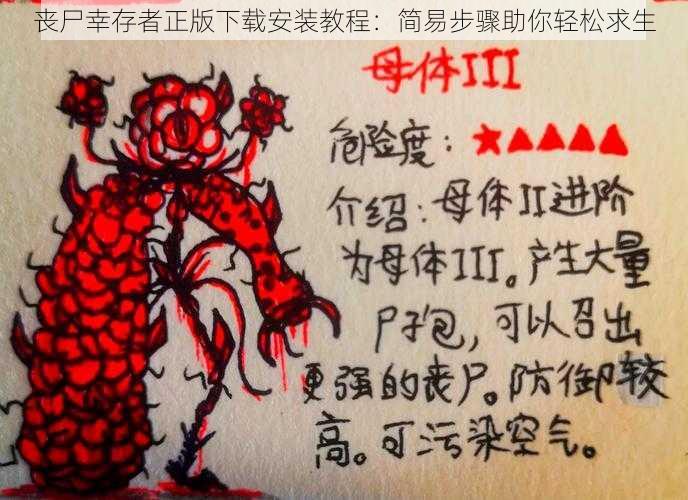 丧尸幸存者正版下载安装教程：简易步骤助你轻松求生
母体III
危险度：★▲▲▲▲
介绍：母体II进阶
为母体III。产生大量
尸孢，可以召出
更强的丧尸。防御较
高。可污染空气。